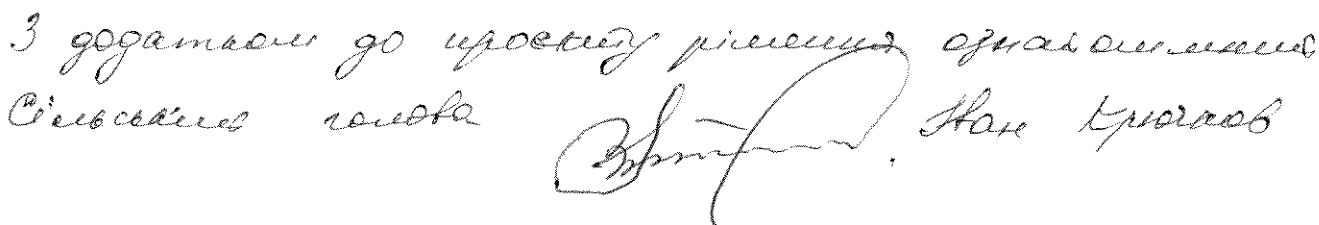 З додатком до проєкту рішення ознайомлений
Сільський голова Іван Крючков